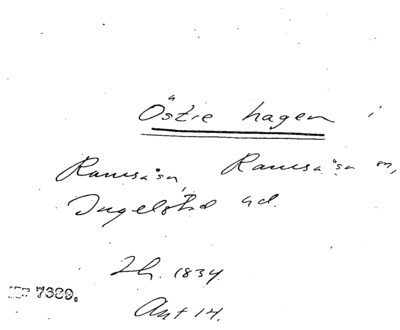 Östre hagen i
Ramsåsa, Ramsåsa sn,
Ingelstad hd.
Lh. 1834
Akt 14.
7389.